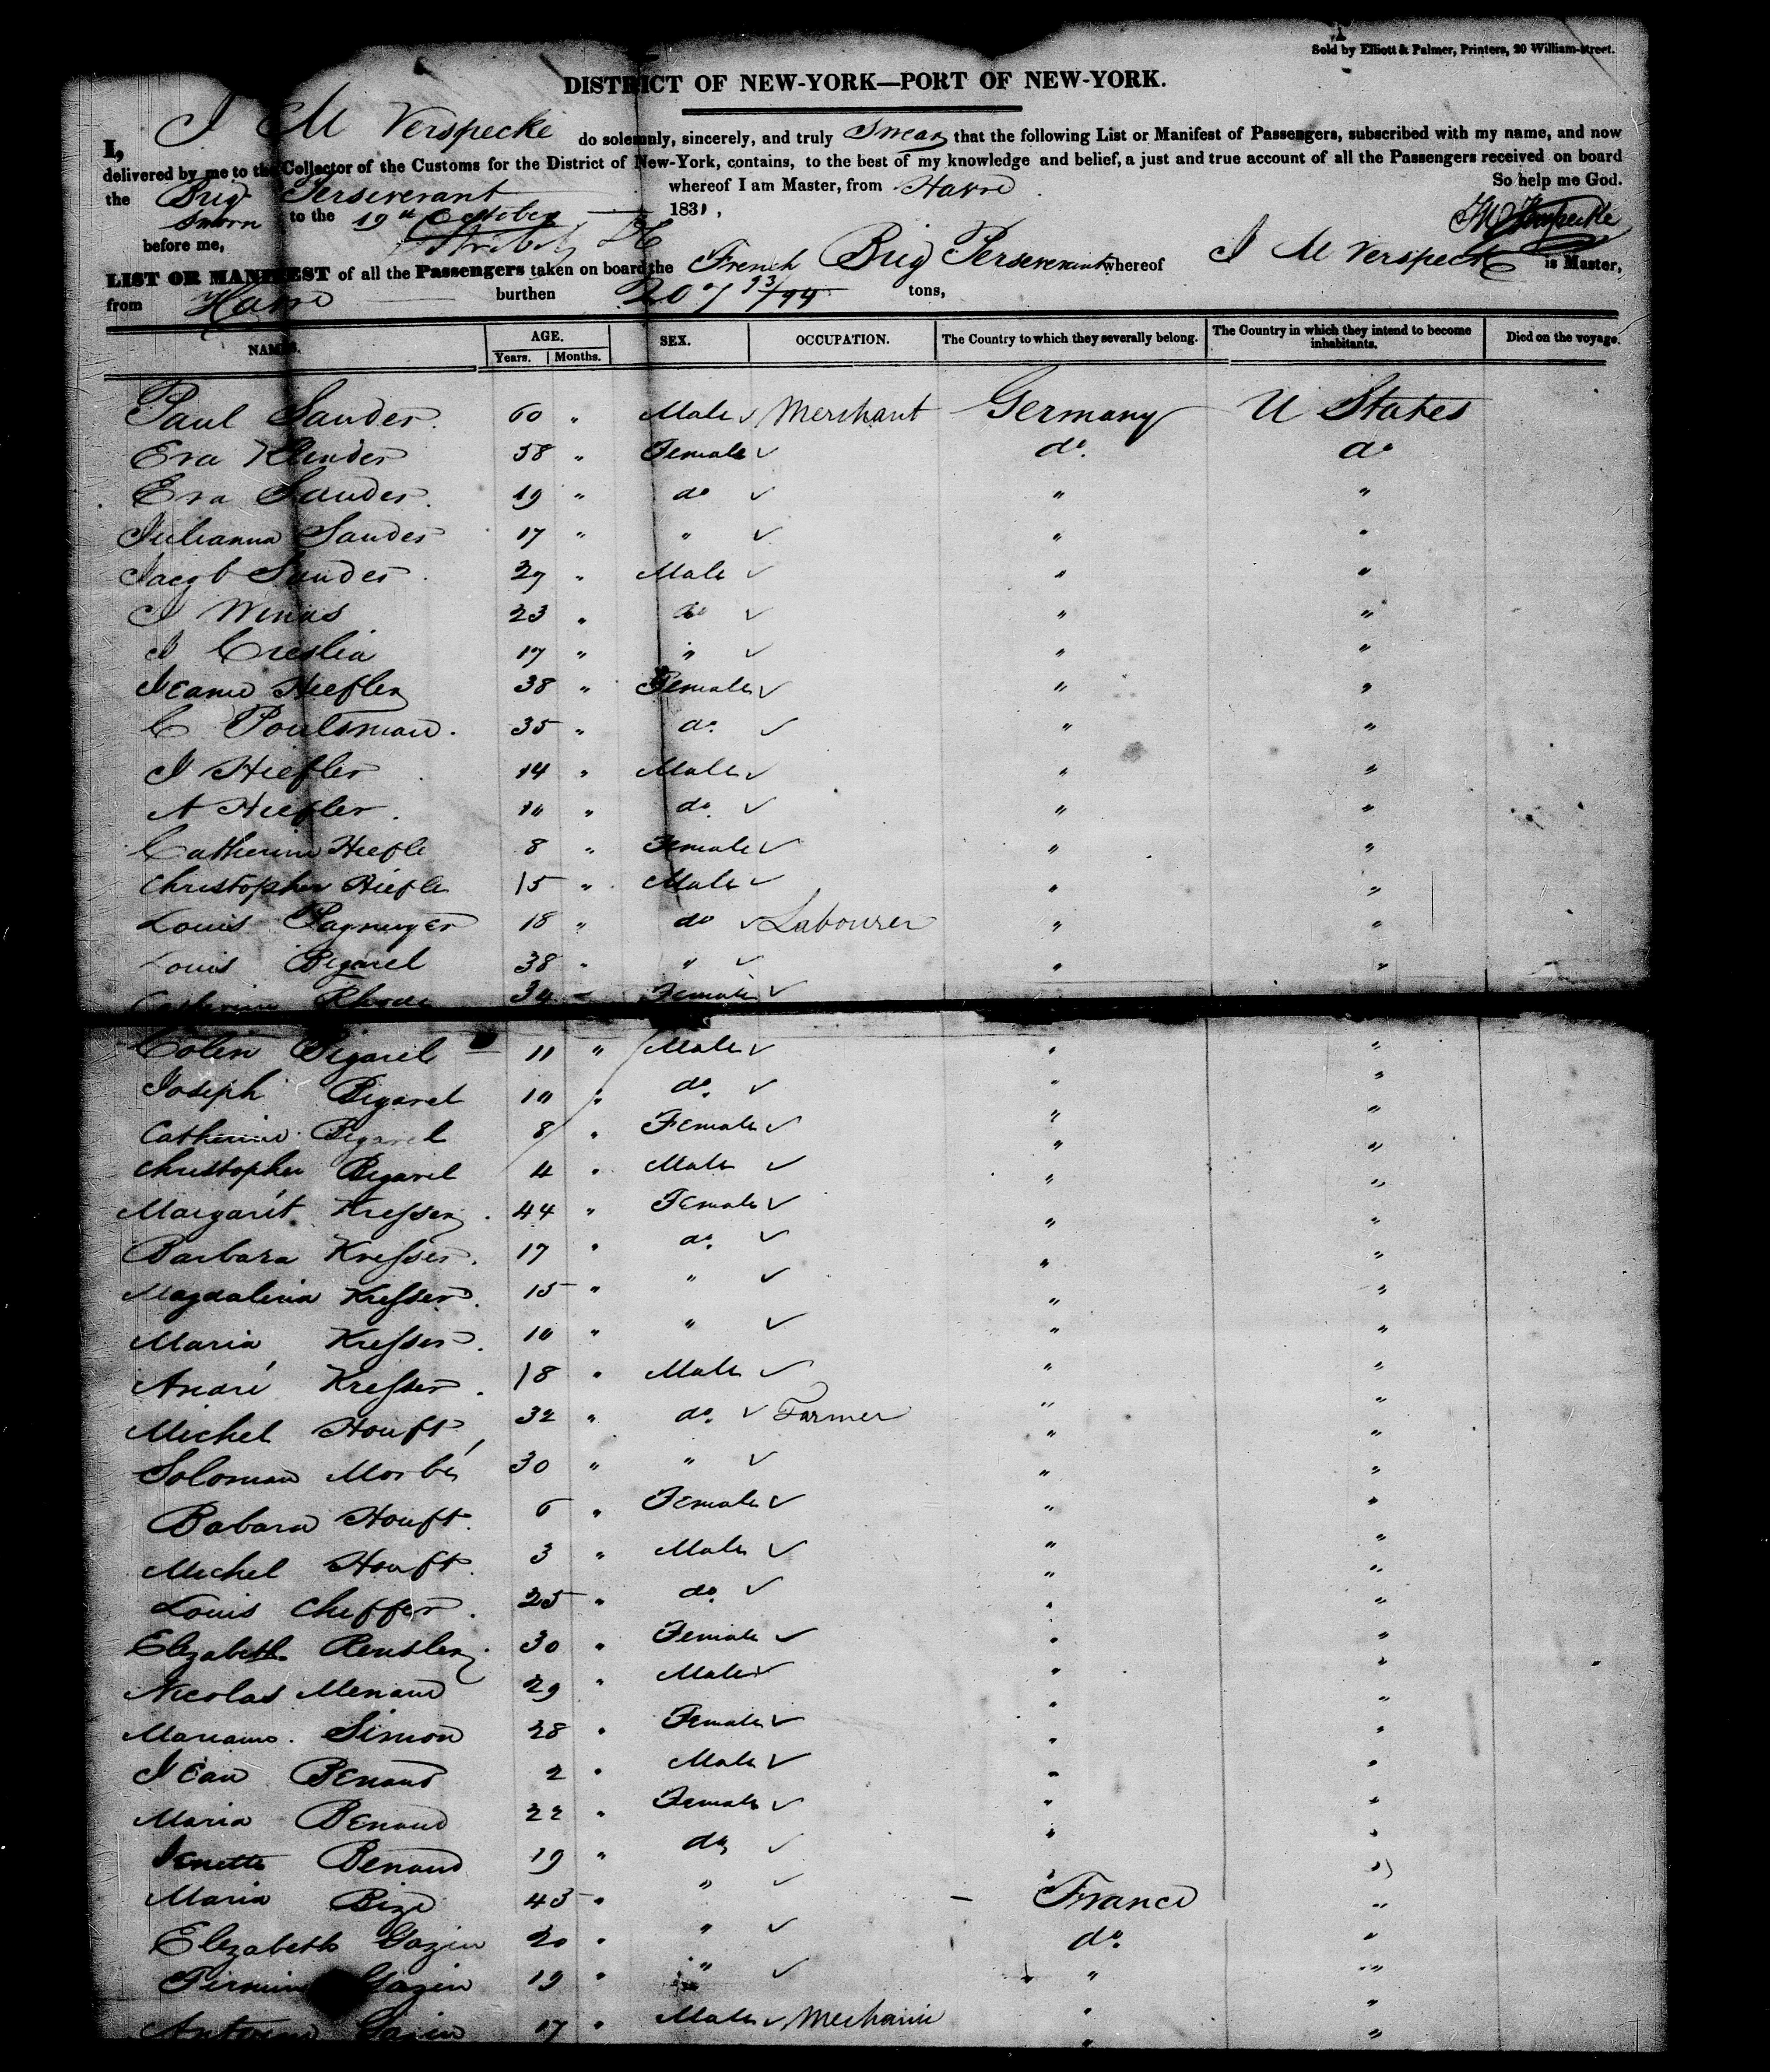 Sold by Elliott & Palmer, Printers, 20 William-street.
DISTRICT OF NEW-YORK—PORT OF NEW-YORK.
I, J M Verspecke do solemnly, sincerely, and truly Swear that the following List or Manifest of Passengers, subscribed with my name, and now
delivered by me to the Collector of the Customs for the District of New-York, contains, to the best of my knowledge and belief, a just and true account of all the Passengers received on board
the Brig Perseverant whereof I am Master, from Havre So help me God.
Sworn to the 19th October 1831,
before me,
LIST OR MANIFEST of all the Passengers taken on board the French Brig Perseverant whereof J M Verspecke is Master,
from Havre burthen 207 93/94 tons,
NAMES. AGE. Years. Months. SEX. OCCUPATION. The Country to which they severally belong. The Country in which they intend to become inhabitants. Died on the voyage.
Paul Sander 60 " Male Merchant Germany U States
Eva 58 " Female do. do
Eva Sander 19 " do " "
Julianna Sander 17 " " " "
Jacob Sander 29 " Male " "
J 23 " do " "
J Creslia 17 " " " "
Jeanne Hiefler 38 " Female " "
C Poulsman. 35 " do. " "
J Hiefler 14 " Male " "
A Hiefler. 10 " do. " "
Catherine Hiefle 8 " Female " "
Christopher Hiefle 15 " Male " "
Louis 18 " do Labourer " "
Louis Bigarel 38 " " " "
Catherine Rhode 34 " Female
Colin Bigarel 11 " Male " "
Joseph Bigarel 10 " do. " "
Catherine Bigarel 8 " Female " "
Christopher Bigarel 4 " Male " "
Margarit Kresser 44 " Female " "
Barbara Kresser. 17 " do. " "
Magdalena Kresser. 15 " " " "
Maria Kresser. 10 " " " "
André Kresser. 18 " Male " "
Michel Houft 32 " do. Farmer " "
Soloman 30 " " " "
Babara Houft. 6 " Female " "
Michel Houft. 3 " Male " "
Louis Cheffer. 25 " do. " "
Elizabeth Rensler. 30 " Female " "
Nicolas Menaud 29 " Male " "
Marianne Simon 28 " Female " "
Jean Benaud 2 " Male " "
Maria Benaud 22 " Female " "
Jenette Benaud 19 " do " "
Maria Bize 43 " " France "
Elizabeth Gazin 20 " " do. "
Firmin Gazin 19 " " " "
Gazin 17 " Male Mechanic " "